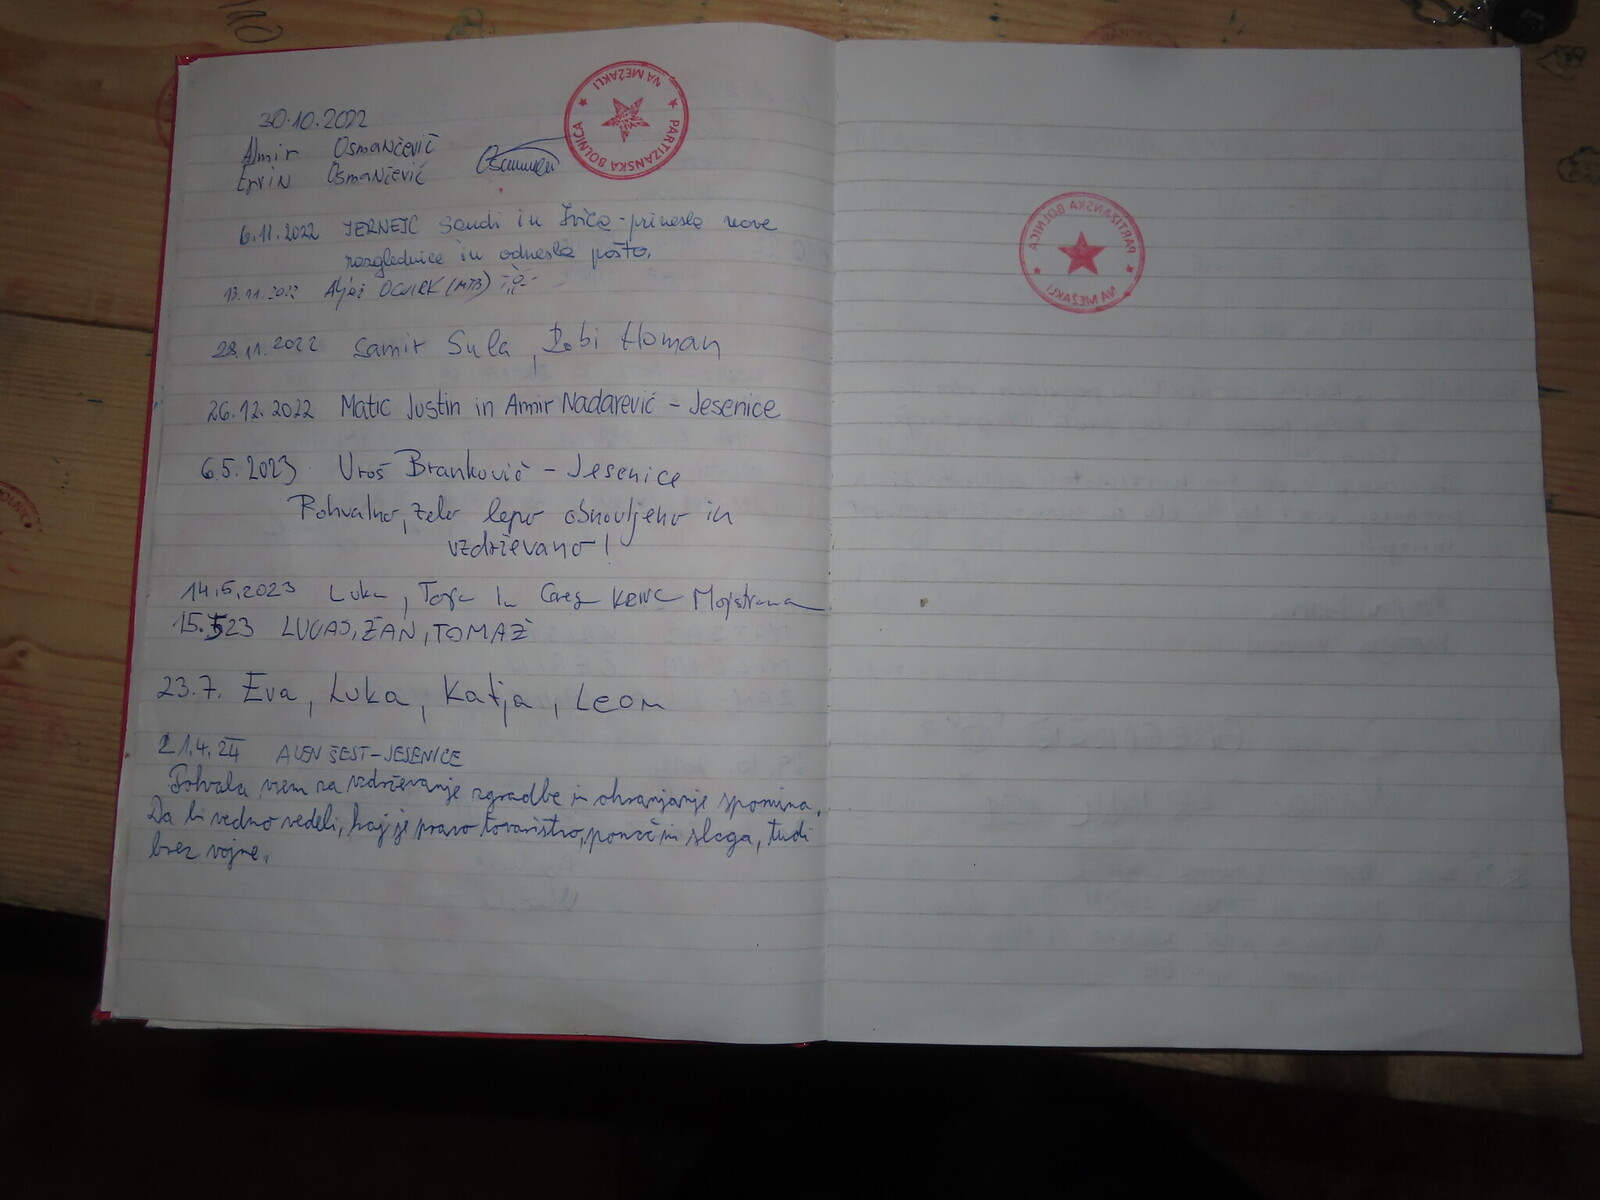 30.10.2022
Almir Osmančević
Ervin Osmančević
PARTIZANSKA BOLNICA
NA MEŽAKLI
6.11.2022 JERNEJC Sandi in Ivica - prinesla nove
razglednice in odnesla pošto.
13.11.2022 Aljaž OCVIRK (MTB)
28.11.2022 Samir Sula, Robi Homan
26.12.2022 Matic Justin in Amir Nadarević - Jesenice
6.5.2023 Uroš Branković - Jesenice
Pohvalno, zelo lepo obnovljeno in
vzdrževano!
14.5.2023 Luka, in Mojstrana
15.5.23 LUCAS, ŽAN, TOMAŽ
23.7. Eva, Luka, Katja, Leon
21.4.24 ALEN ŠEST - JESENICE
Pohvala vsem za vzdrževanje zgradbe in ohranjanje spomina.
Da bi vedno vedeli, kaj je pravo tovarištvo, pomoč in sloga, tudi
brez vojne.
PARTIZANSKA BOLNICA
NA MEŽAKLI